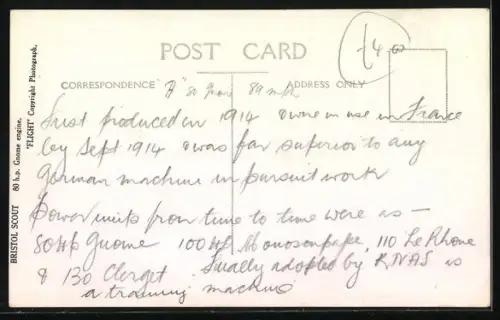 POST CARD
£4.00
CORRESPONDENCE
"B" 80 Gnome 89 mph
ADDRESS ONLY
First produced in 1914 & were in use in France
by Sept 1914 & was far superior to any
German machine in pursuit work
Power units from time to time were as —
80HP Gnome 100HP Monosoupape, 110 Le Rhone
& 130 Clerget Finally adopted by RNAS as
a training machine
BRISTOL SCOUT 80 h.p. Gnome engine.
"FLIGHT" Copyright Photograph.